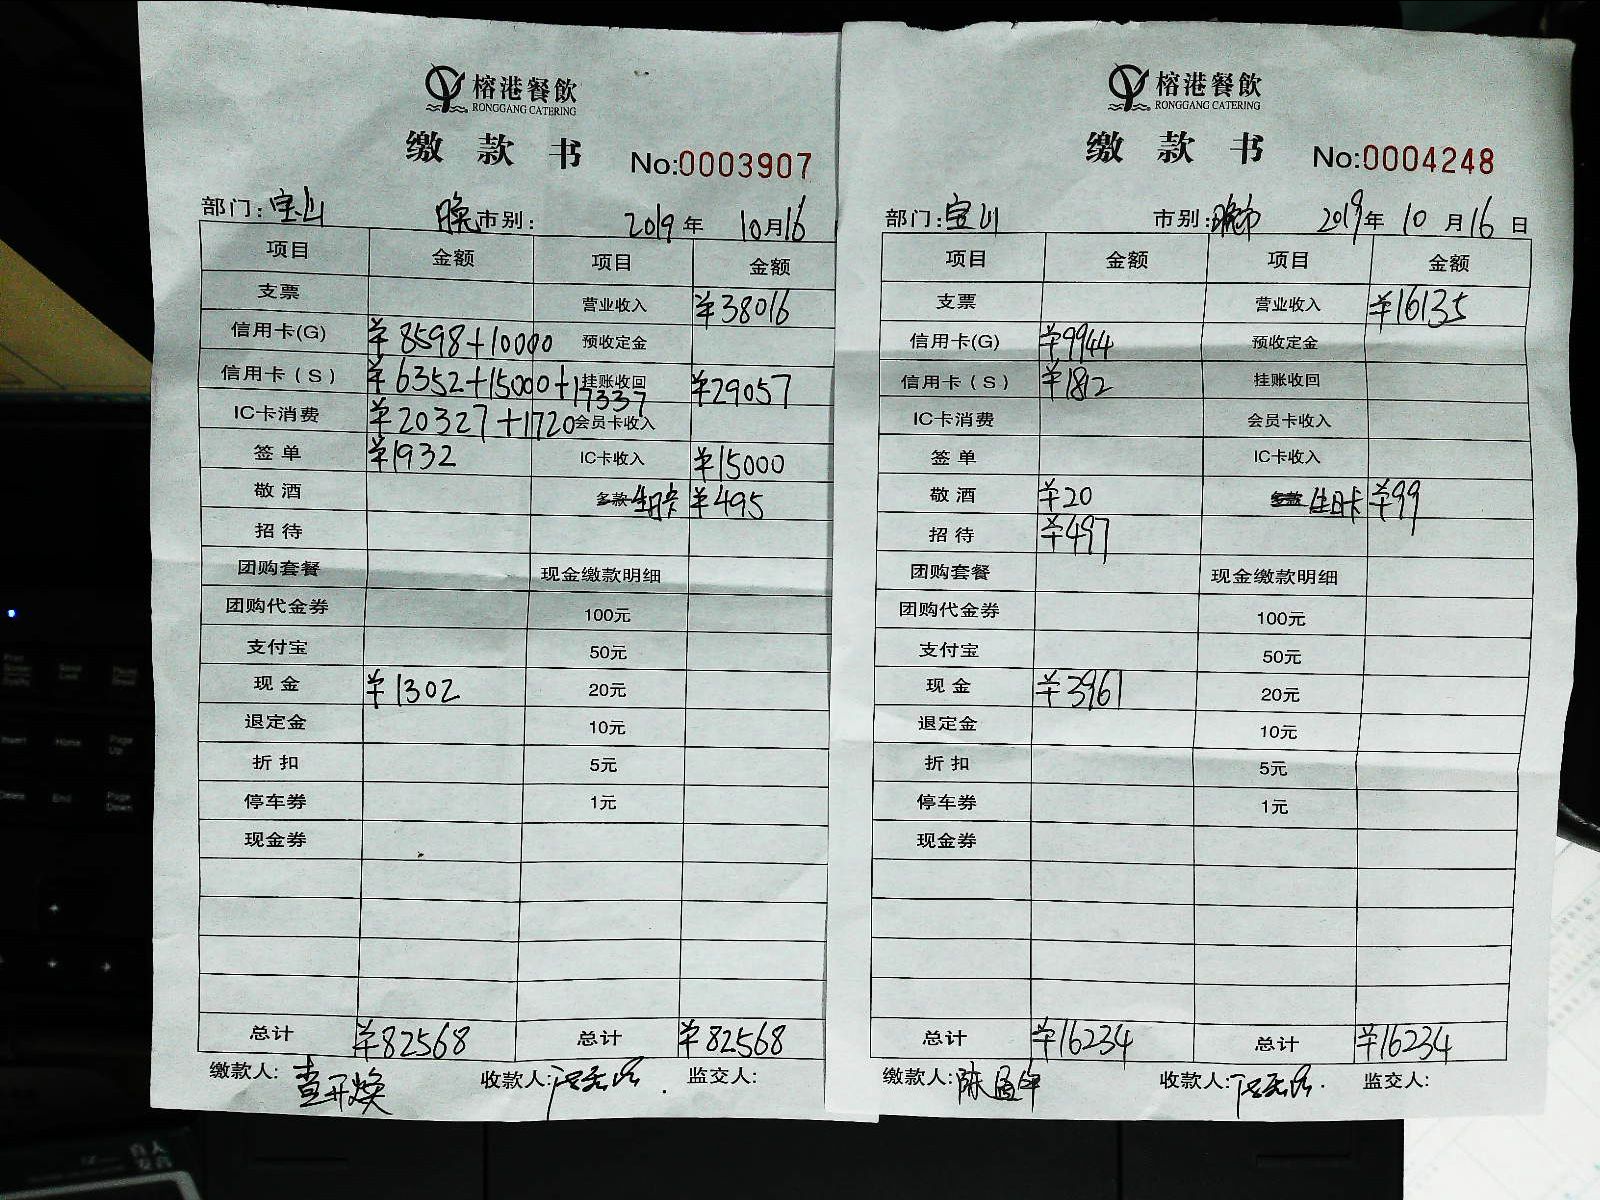 榕港餐飲
RONGGANG CATERING
缴款书 No:0003907
部门:宝山 晚市别: 2019年 10月16
项目 金额 项目 金额
支票 营业收入 ¥38016
信用卡(G) ¥8598+10000 预收定金
信用卡(S) ¥6352+15000+17337 挂账收回 ¥29057
IC卡消费 ¥20327+1720 会员卡收入
签单 ¥1932 IC卡收入 ¥15000
敬酒 多款 生日卡 ¥495
招待
团购套餐 现金缴款明细
团购代金券 100元
支付宝 50元
现金 ¥1302 20元
退定金 10元
折扣 5元
停车券 1元
现金券
总计 ¥82568 总计 ¥82568
缴款人: 收款人: 监交人:
榕港餐飲
RONGGANG CATERING
缴款书 No:0004248
部门:宝山 市别:晚市 2019年 10月16日
项目 金额 项目 金额
支票 营业收入 ¥16135
信用卡(G) ¥9944 预收定金
信用卡(S) ¥1812 挂账收回
IC卡消费 会员卡收入
签单 IC卡收入
敬酒 ¥20 生日卡 ¥99
招待 ¥497
团购套餐 现金缴款明细
团购代金券 100元
支付宝 50元
现金 ¥3961 20元
退定金 10元
折扣 5元
停车券 1元
现金券
总计 ¥16234 总计 ¥16234
缴款人:陈 收款人: 监交人: